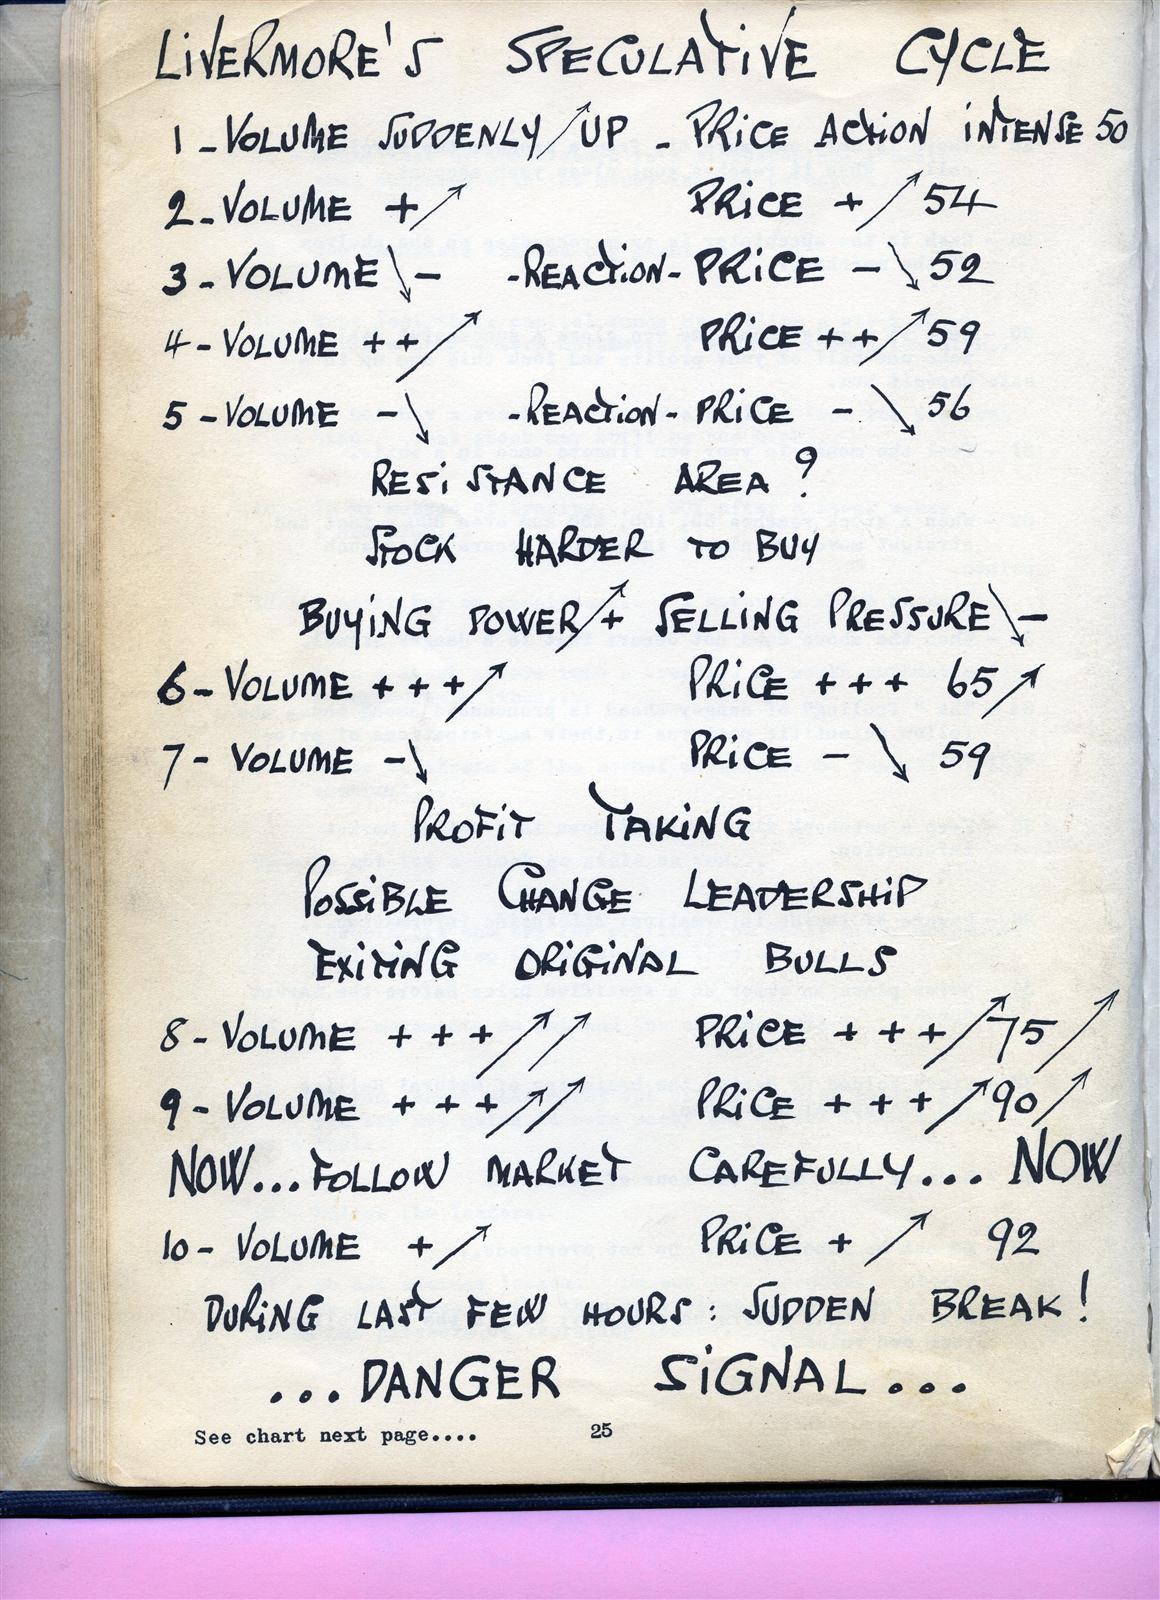 LIVERMORE'S SPECULATIVE CYCLE
1 - VOLUME SUDDENLY ↗ UP - PRICE ACTION INTENSE 50
2 - VOLUME + ↗ PRICE + ↗ 54
3 - VOLUME ↘ - -REACTION- PRICE - ↘ 52
4 - VOLUME + + ↗ PRICE + + ↗ 59
5 - VOLUME - ↘ -REACTION- PRICE - ↘ 56
RESISTANCE AREA ?
STOCK HARDER TO BUY
BUYING POWER ↗ + SELLING PRESSURE ↘ -
6 - VOLUME + + + ↗ PRICE + + + 65 ↗
7 - VOLUME - ↘ PRICE - ↘ 59
PROFIT TAKING
POSSIBLE CHANGE LEADERSHIP
EXITING ORIGINAL BULLS
8 - VOLUME + + + ↗ ↗ PRICE + + + ↗ 75 ↗
9 - VOLUME + + + ↗ ↗ PRICE + + + ↗ 90 ↗
NOW... FOLLOW MARKET CAREFULLY... NOW
10 - VOLUME + ↗ PRICE + ↗ 92
DURING LAST FEW HOURS : SUDDEN BREAK !
... DANGER SIGNAL ...
See chart next page.... 25